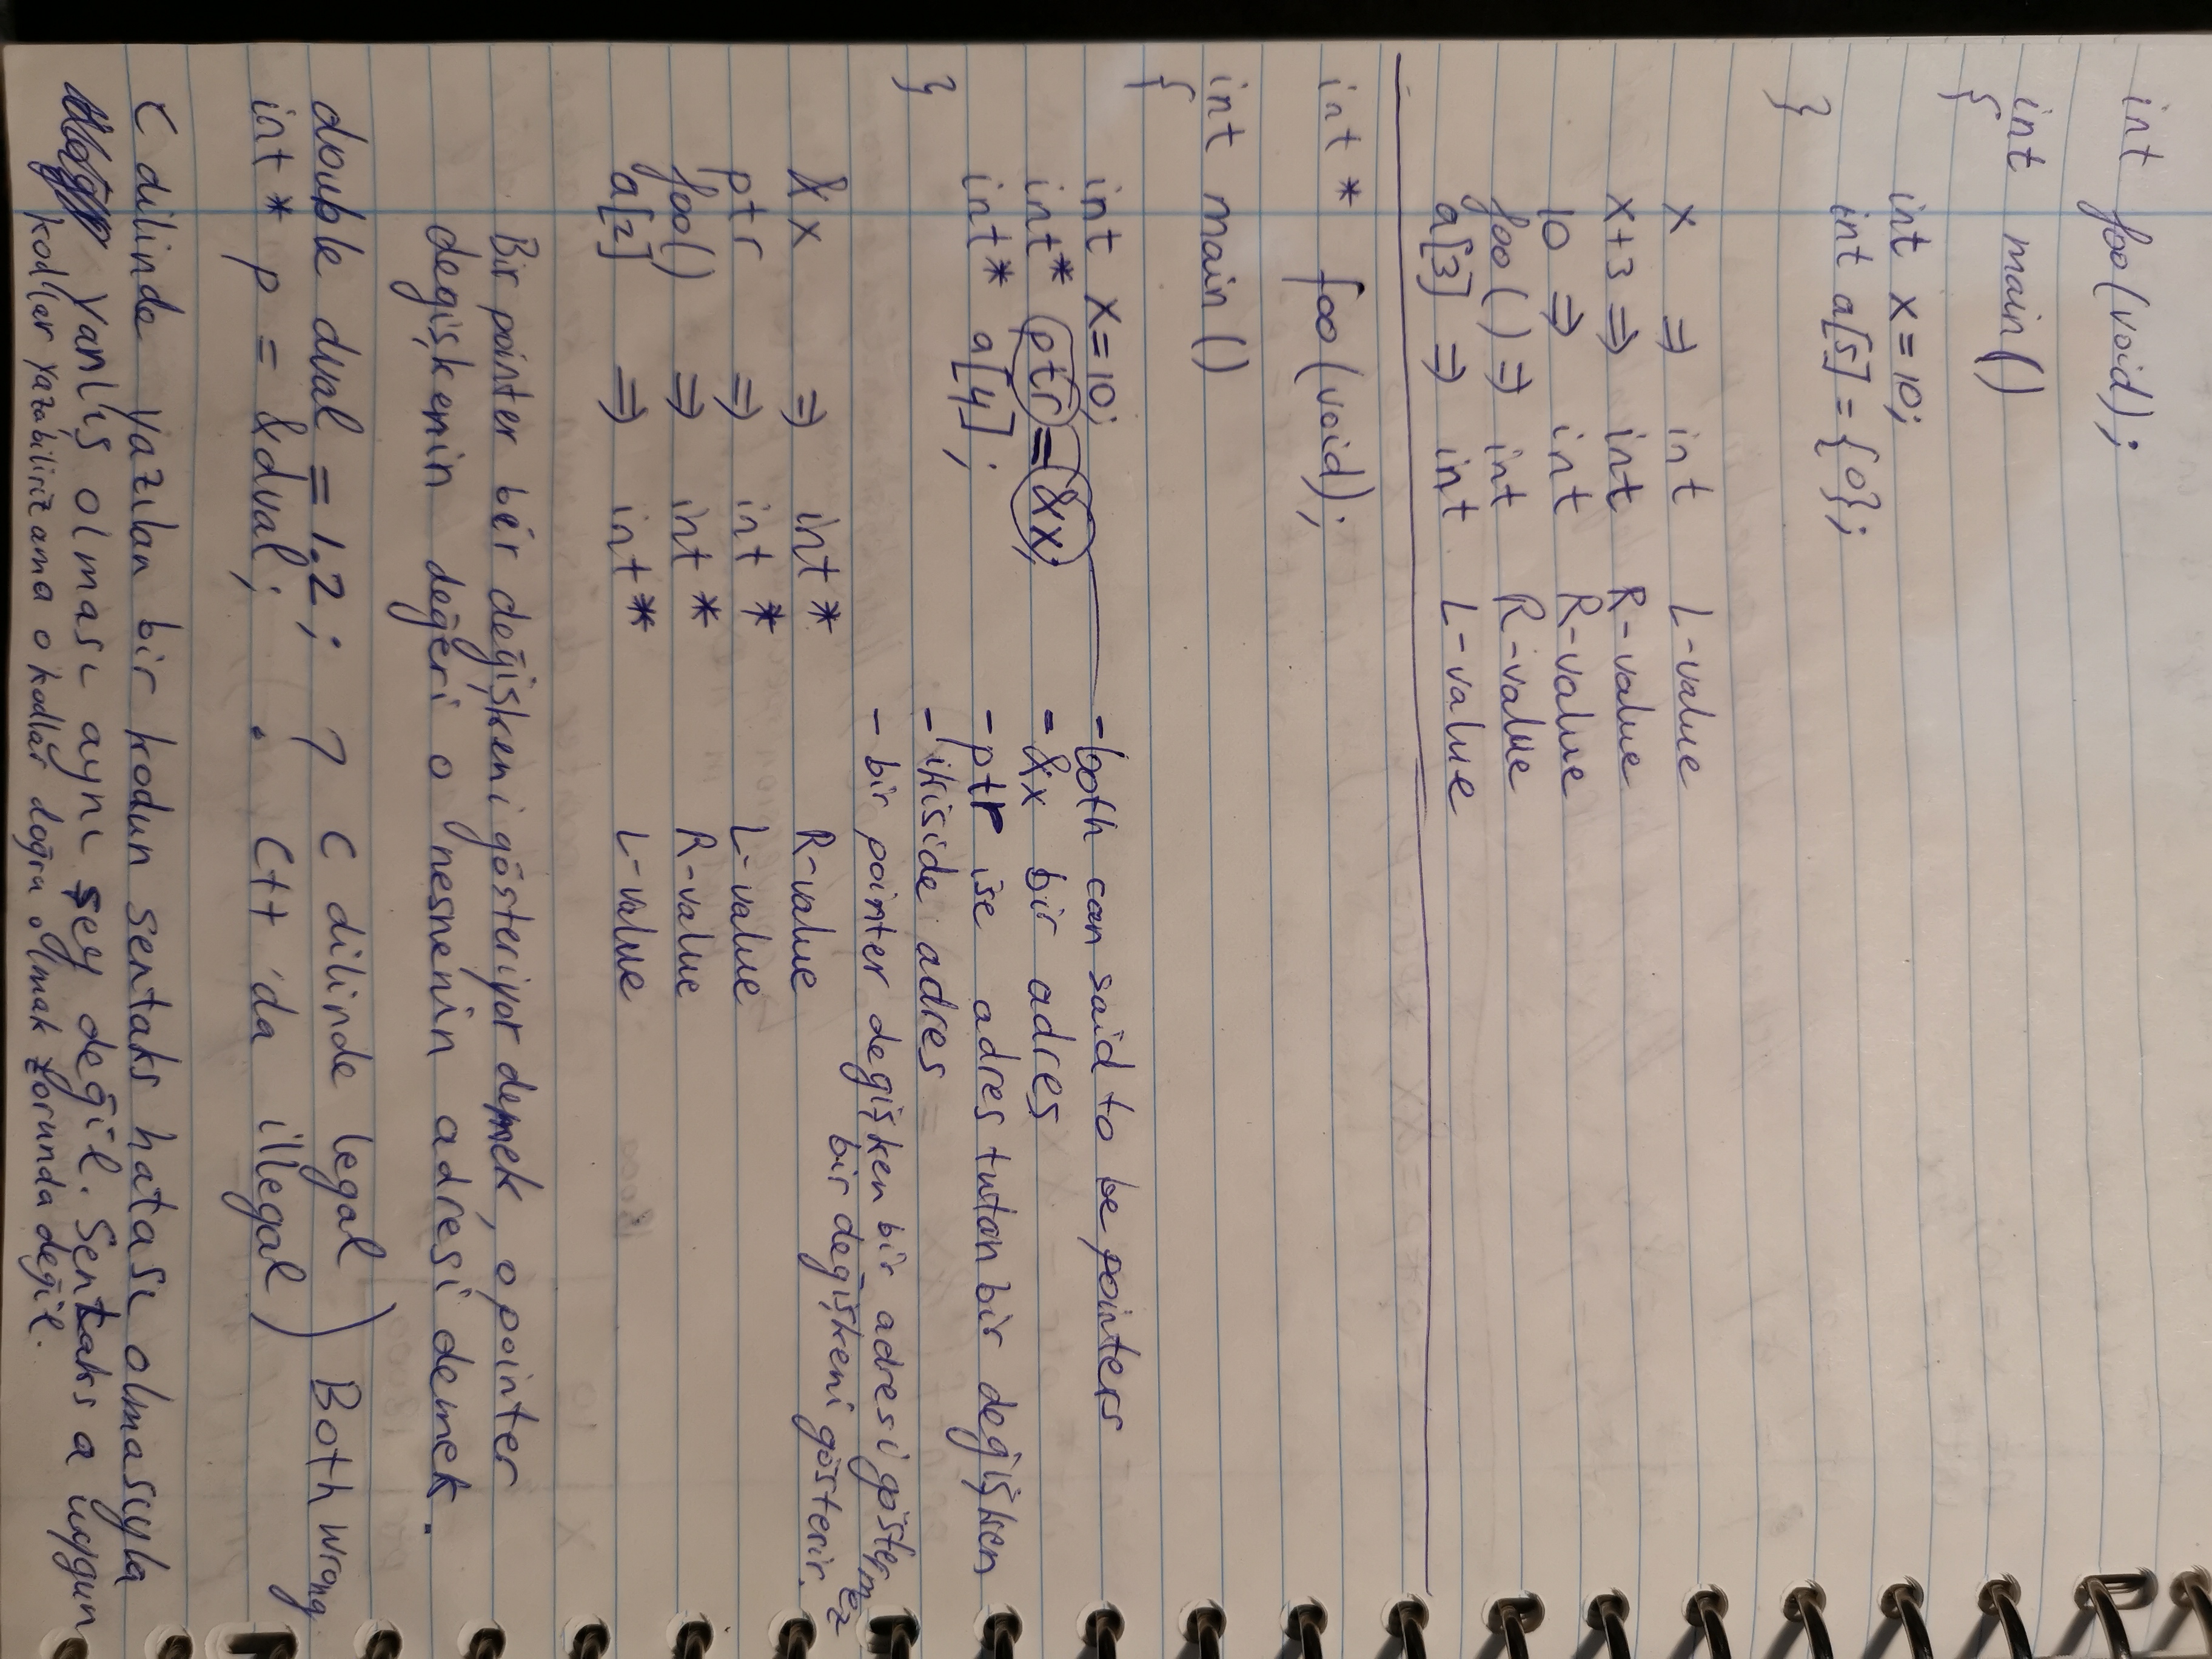 int foo(void);
int main()
{
int x=10;
int a[5]={0};
}
x ⇒ int L-value
x+3 ⇒ int R-value
10 ⇒ int R-value
foo() ⇒ int R-value
a[3] ⇒ int L-value
int* foo(void);
int main()
{
int x=10; -both can said to be pointers
int* ptr=&x; -&x bir adres
int* a[4]; -ptr ise adres tutan bir değişken
} - ikiside adres
- bir pointer degişken bir adresi göstermez
bir değişkeni gösterir.
&x ⇒ int* R-value
ptr ⇒ int* L-value
foo() ⇒ int* R-value
a[2] ⇒ int* L-value
Bir pointer bir değişkeni gösteriyor demek, o pointer
degişkenin değeri o nesnenin adresi demek.
double dval = 1.2; ? C dilinde legal ) Both wrong
int* p = &dval; C++'da illegal
C dilinde yazılan bir kodun sentaks hatası olmasıyla
yanlış olması aynı şey değil. Sentaks a uygun
kodlar yazabiliriz ama o kodlar doğru olmak zorunda değil.